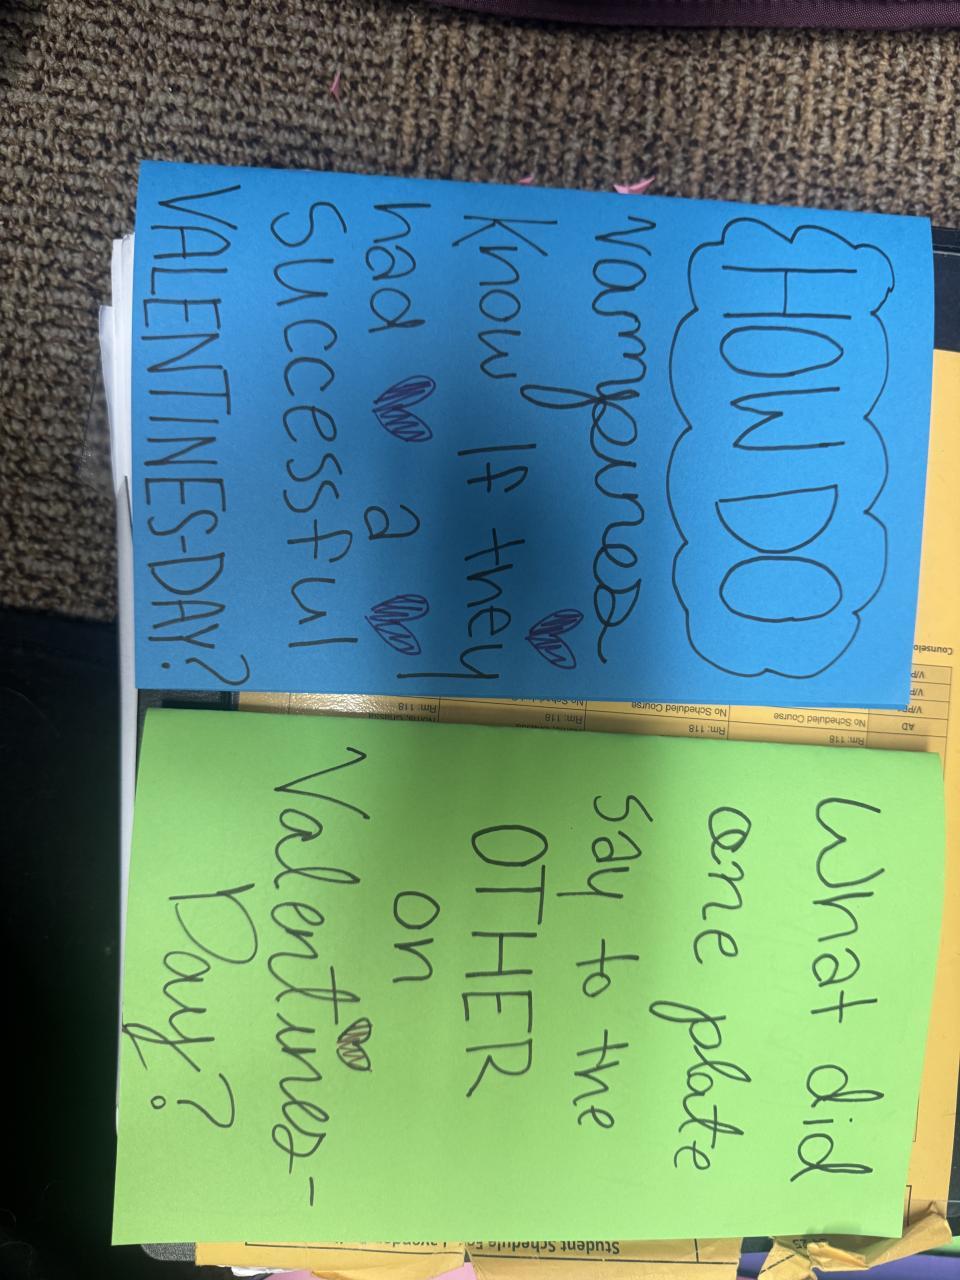 HOW DO
Vampires
Know If they
had a
Successful
VALENTINES-DAY?
What did
one plate
say to the
OTHER
on
Valentines-
Day?
Counselo
V/P/
V/P/
AD
No Scheduled Course
Rm: 118
No Scheduled Course
Rm: 118
Rm: 118
Rm: 118
Student Schedule Fo